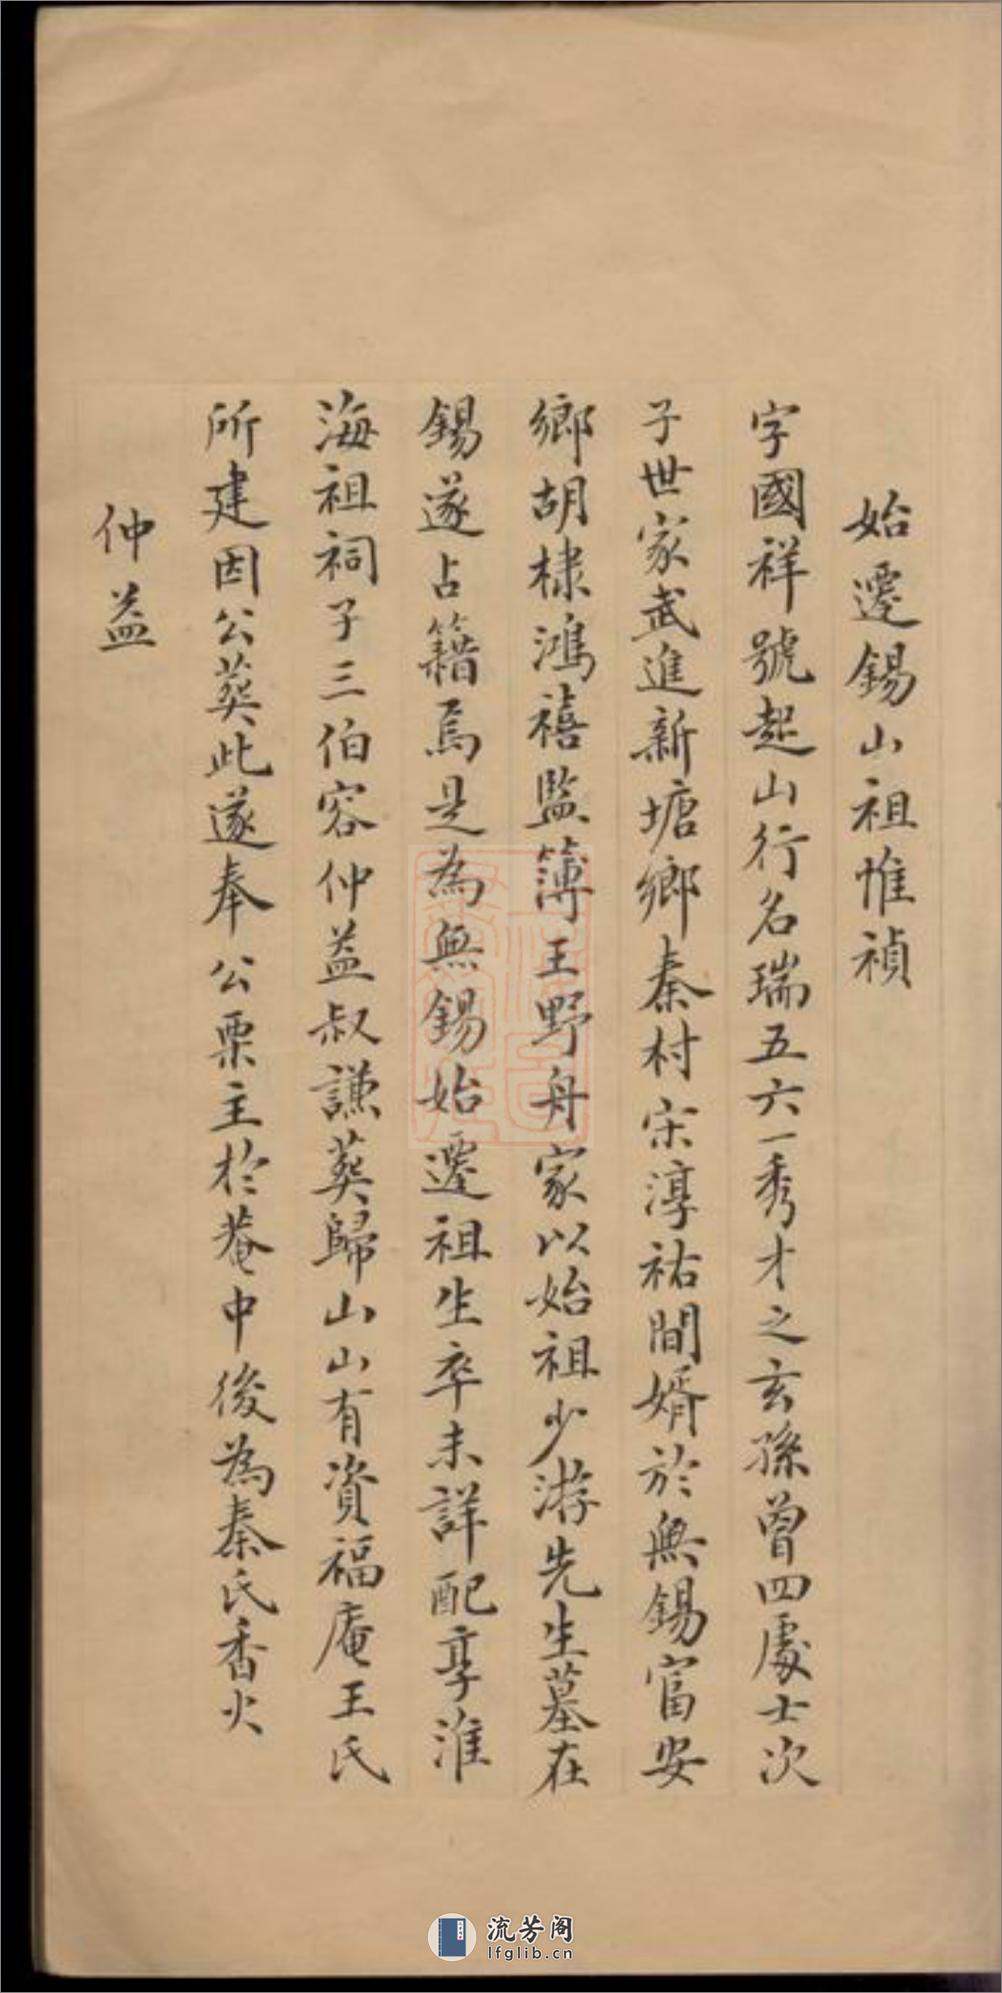 始遷錫山祖惟禎
字國祥號起山行名瑞五六一秀才之玄孫曾四處士次
子世家武進新塘鄉秦村宋淳祐間婿於無錫富安
鄉胡棣鴻禧監簿王野舟家以始祖少游先生墓在
錫遂占籍焉是為無錫始遷祖生卒未詳配享淮
海祖祠子三伯容仲益叔謙葬歸山山有資福庵王氏
所建因公葬此遂奉公栗主於菴中後為秦氏香火
仲益
流芳阁
lfglib.cn